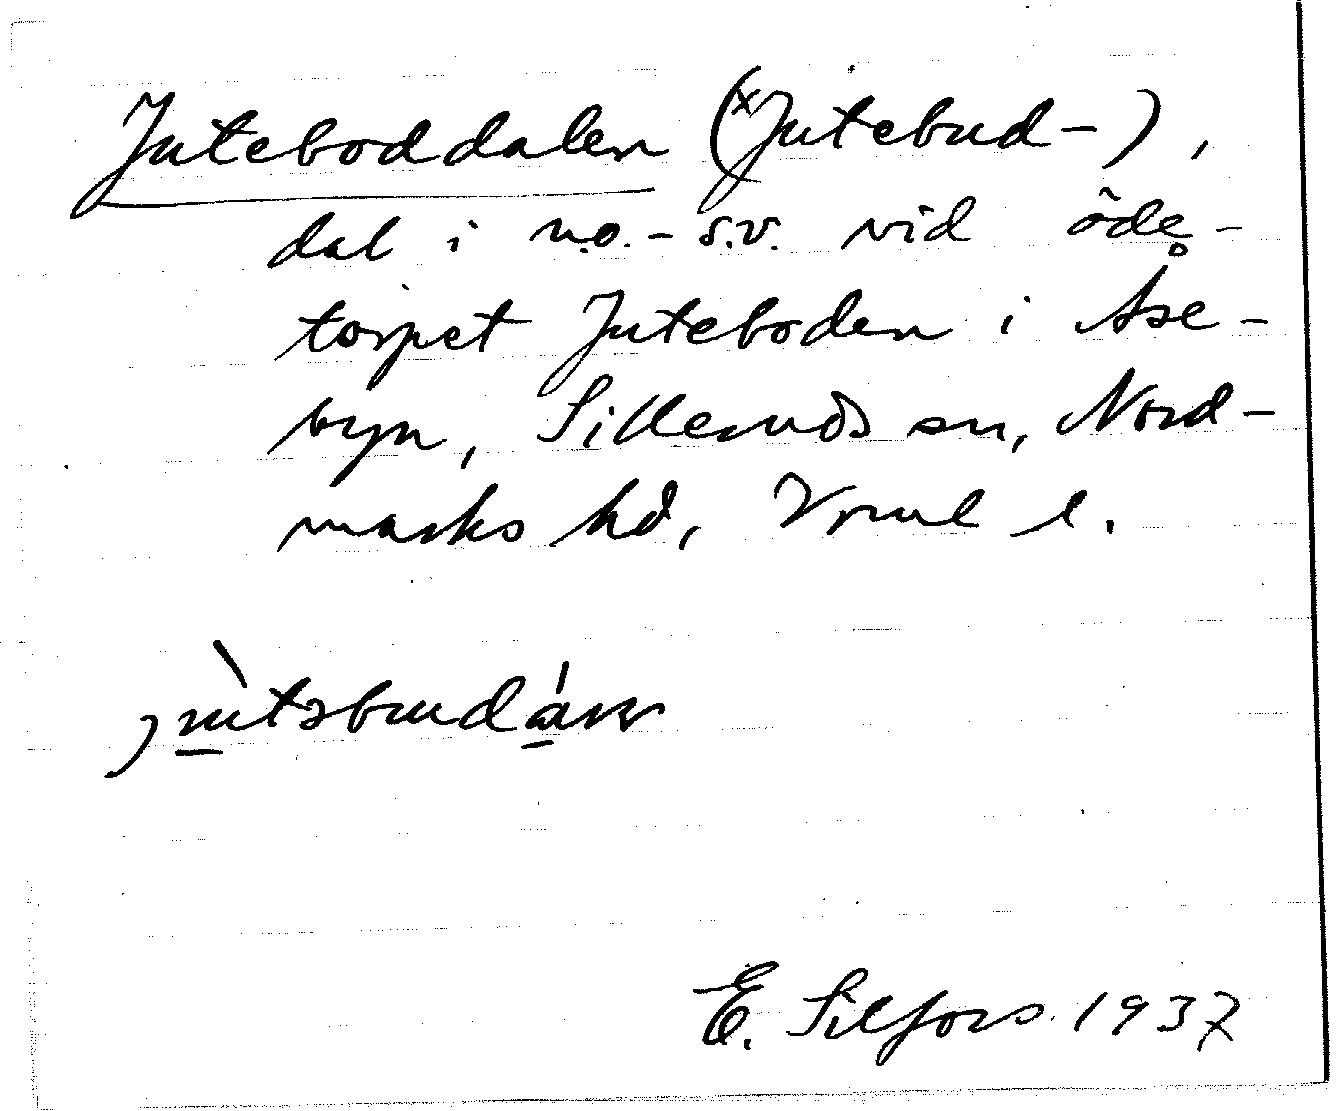 Juteboddalen (×Jutebud-),
dal i n.o.-s.v. vid öde-
torpet Juteboden i Åse-
byn, Silleruds sn, Nord-
marks hd, Vrml l.
E. Silfors 1937